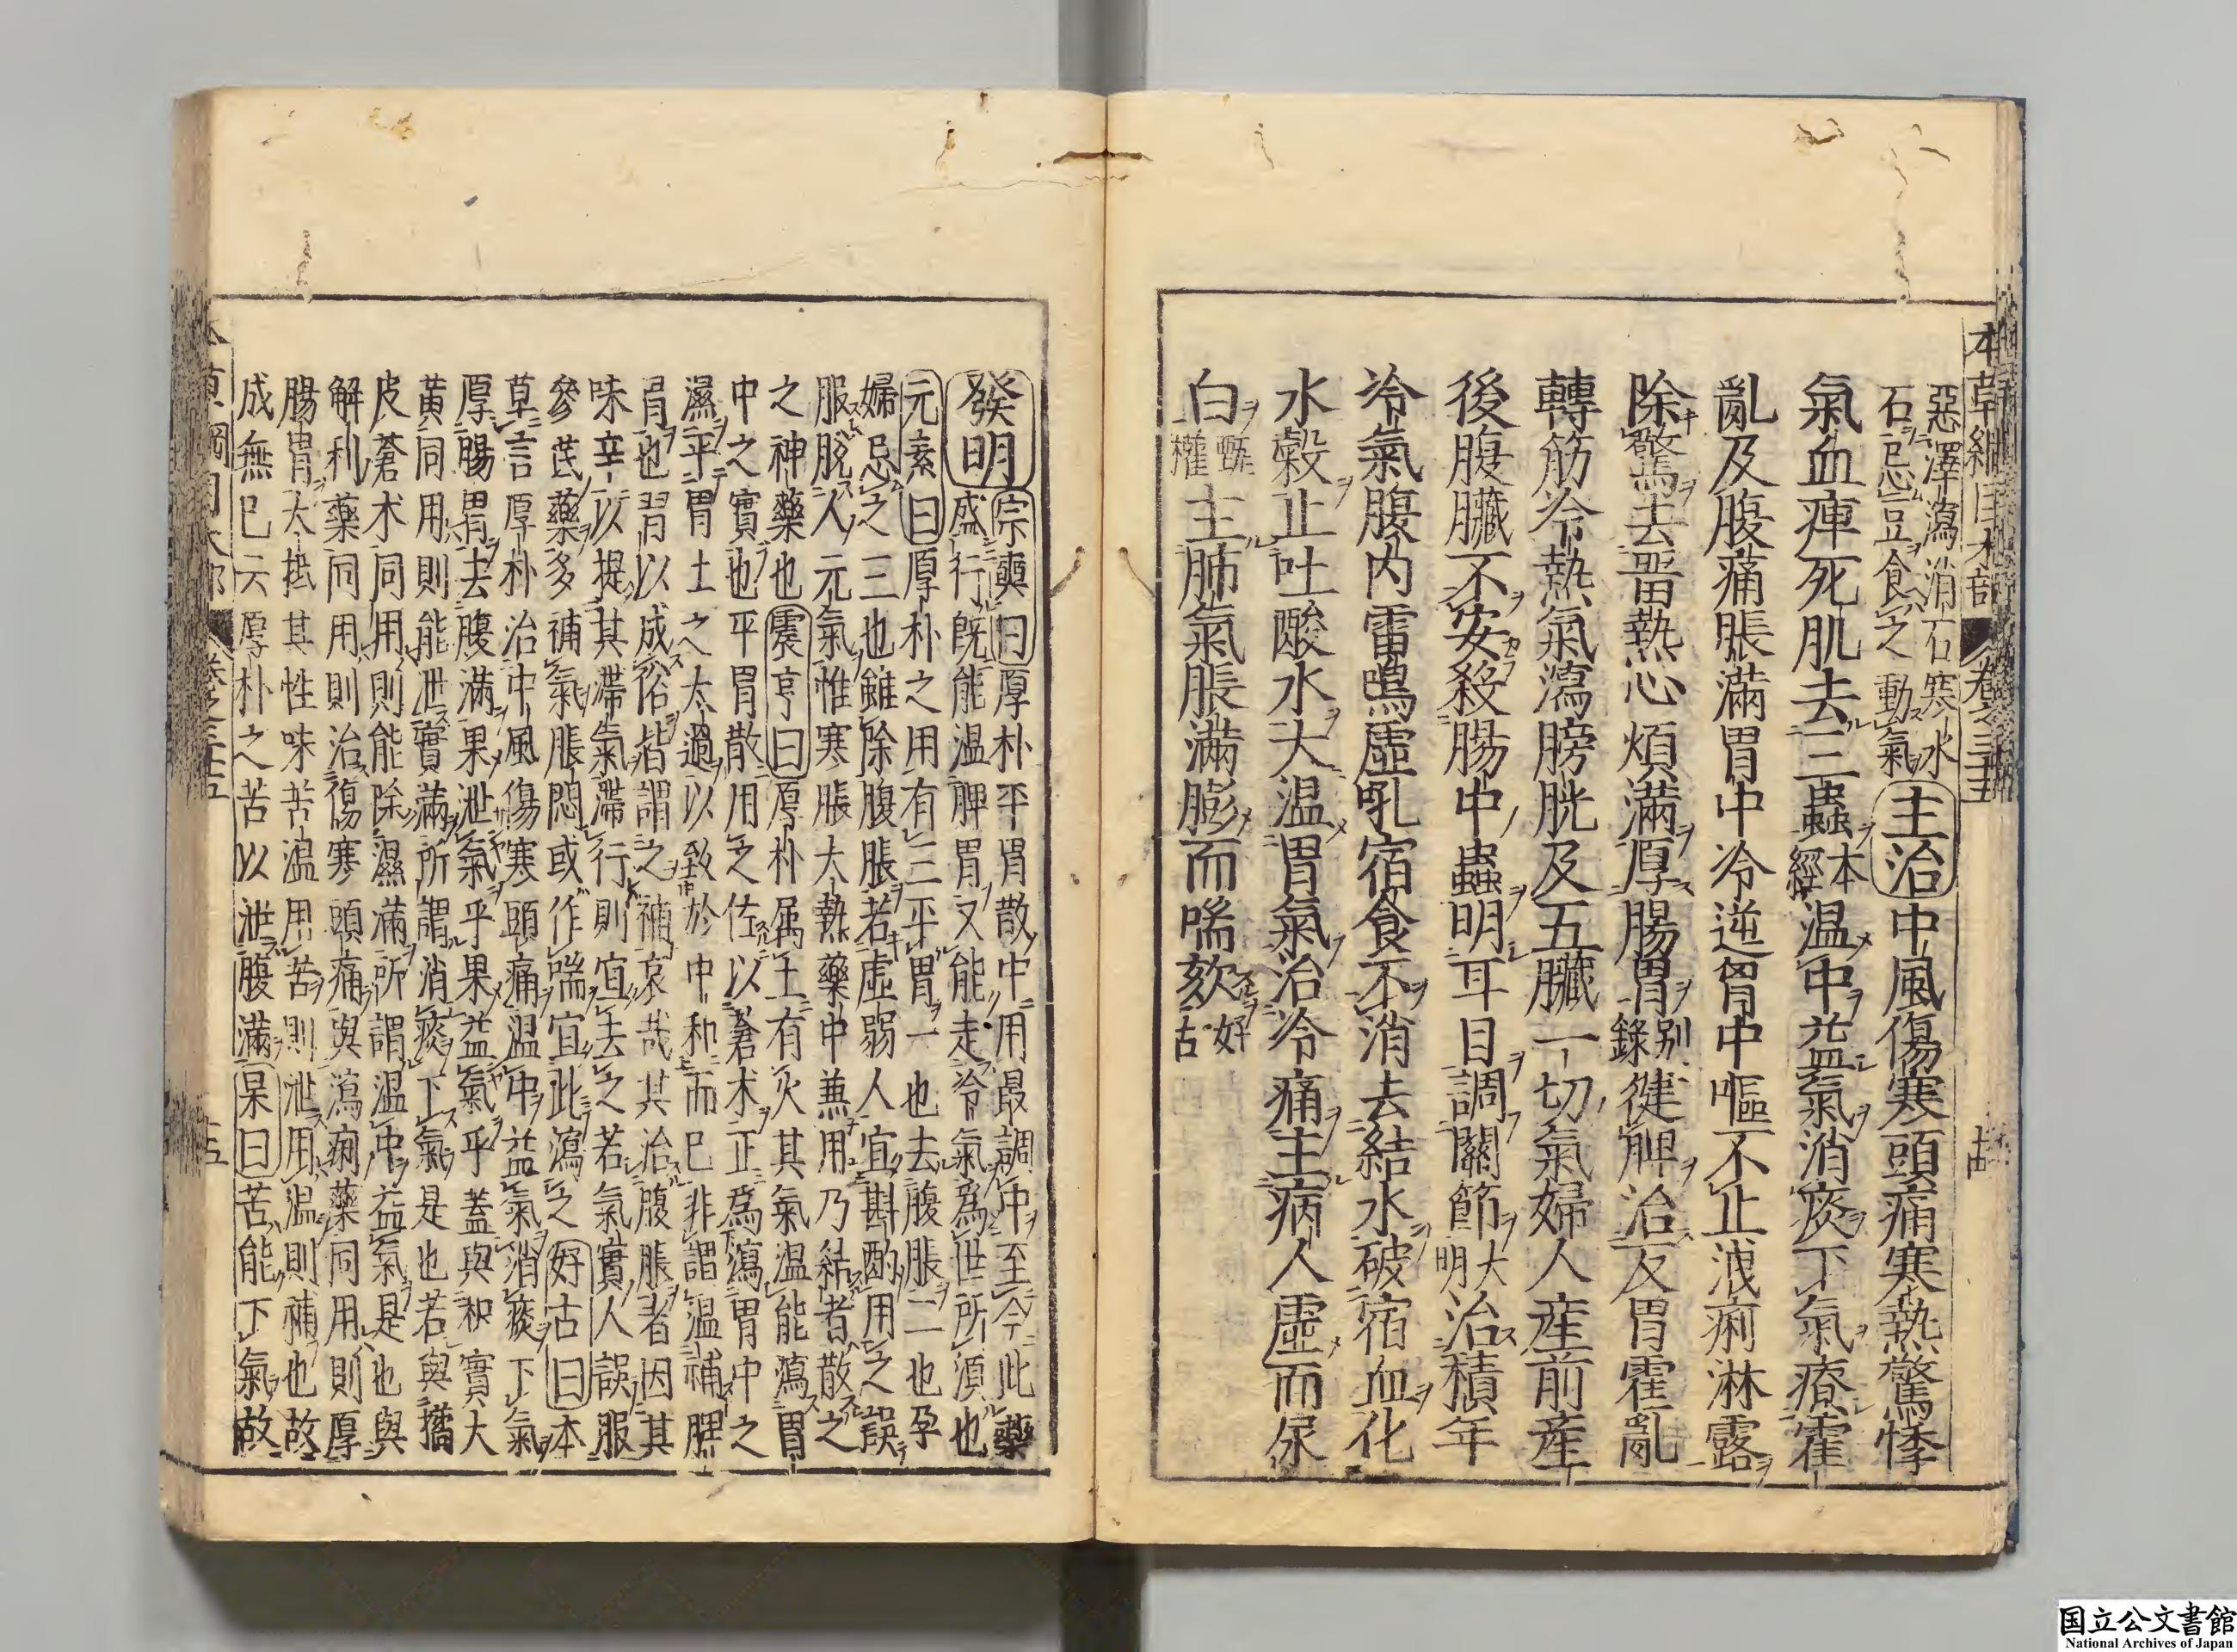 本草綱目木部 卷之三十五 十四
惡澤瀉消石寒水
石忌豆食之動氣主治中風傷寒頭痛寒熱驚悸
氣血痺死肌去三蟲本經温中益氣消痰下氣療霍
亂及腹痛脹滿胃中冷逆胸中嘔不止洩痢淋露
除驚去畱熱心煩滿厚腸胃別錄健脾治反胃霍亂
轉筋冷熱氣瀉膀胱及五臟一切氣婦人産前産
後腹臟不安殺腸中蟲明耳目調關節大明治積年
冷氣腹内雷鳴虛吼宿食不消去結水破宿血化
水穀止吐酸水大温胃氣治冷痛主病人虛而尿
白甄權主肺氣脹滿膨而喘欬好古
發明宗奭曰厚朴平胃散中用最調中至今此藥
盛行既能温脾胃又能走冷氣爲世所須也
元素曰厚朴之用有三平胃一也去腹脹二也孕
婦忌之三也雖除腹脹若虛弱人宜斟酌用之誤
服脫人元氣惟寒脹大熱藥中兼用乃結者散之
之神藥也震亨曰厚朴属土有火其氣温能瀉胃
中之實也平胃散用之佐以蒼术正爲瀉胃中之
濕平胃土之太過以致於中和而已非謂温補脾
胃也習以成俗皆謂之補哀哉其治腹脹者因其
味辛以提其滯氣滯行則宜去之若氣實人誤服
參芪藥多補氣脹悶或作喘宜此瀉之好古曰本
草言厚朴治中風傷寒頭痛温中益氣消痰下氣
厚腸胃去腹滿果泄氣乎果益氣乎蓋與枳實大
黃同用則能泄實滿所謂消痰下氣是也若與橘
皮蒼术同用則能除濕滿所謂温中益氣是也與
解利藥同用則治傷寒頭痛與瀉痢藥同用則厚
腸胃大抵其性味苦温用苦則泄用温則補也故
成無已云厚朴之苦以泄腹滿杲曰苦能下氣故
草綱目木部 卷之三十五 十五
国立公文書館
National Archives of Japan